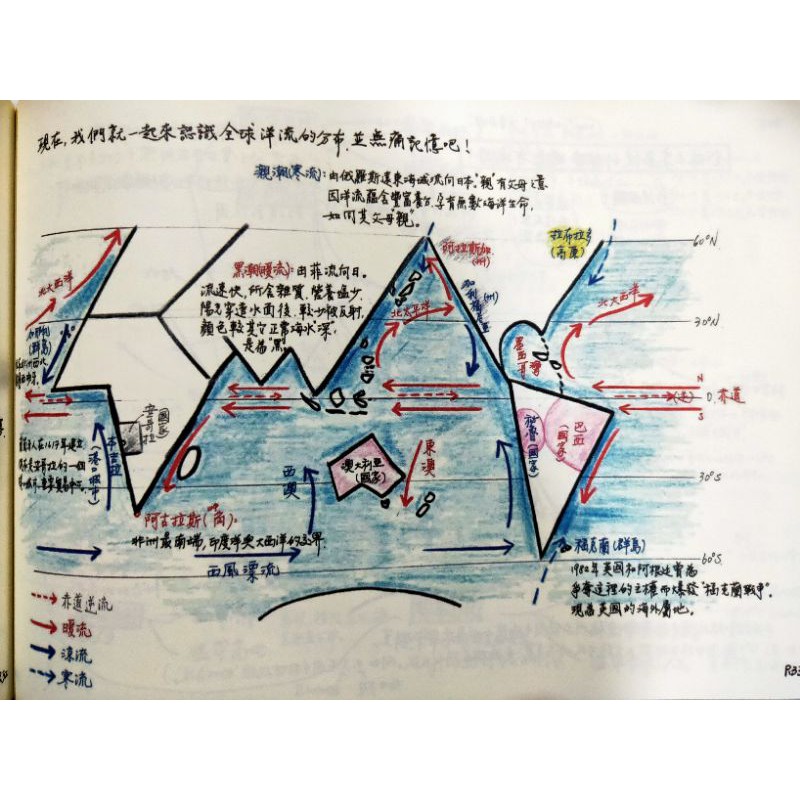 現在,我們就一起來認識全球洋流的分布,並無痛記憶吧!
親潮(寒流):由俄羅斯遠東海域流向日本。"親"有父母之意
因洋流蘊含豐富養分,孕育無數海洋生命,
如同其父母親"。
拉布拉多
(高原)
60°N
阿拉斯加
(州)
黑潮(暖流):由菲流向日。
流速快,所含雜質、營養鹽少
陽光穿透水面後,較少被反射,
顏色較其它正常海水深,
是為"黑"。
北大西洋
北太平洋
加利福尼亞
(州)
北大西洋
30°N
(群島)
墨西哥灣
N
0°赤道
S
安哥拉
(國家)
本吉拉
(港口城市)
秘魯(國家)
巴西
(國家)
西澳
澳大利亞
(國家)
東澳
30°S
阿古拉斯(角):
非洲最南端,印度洋與大西洋的交界
西風漂流
福克蘭(群島)
60°S
1982年英國和阿根廷曾為
爭奪這裡的主權而爆發"福克蘭戰爭"。
現為英國的海外屬地。
赤道逆流
暖流
涼流
寒流